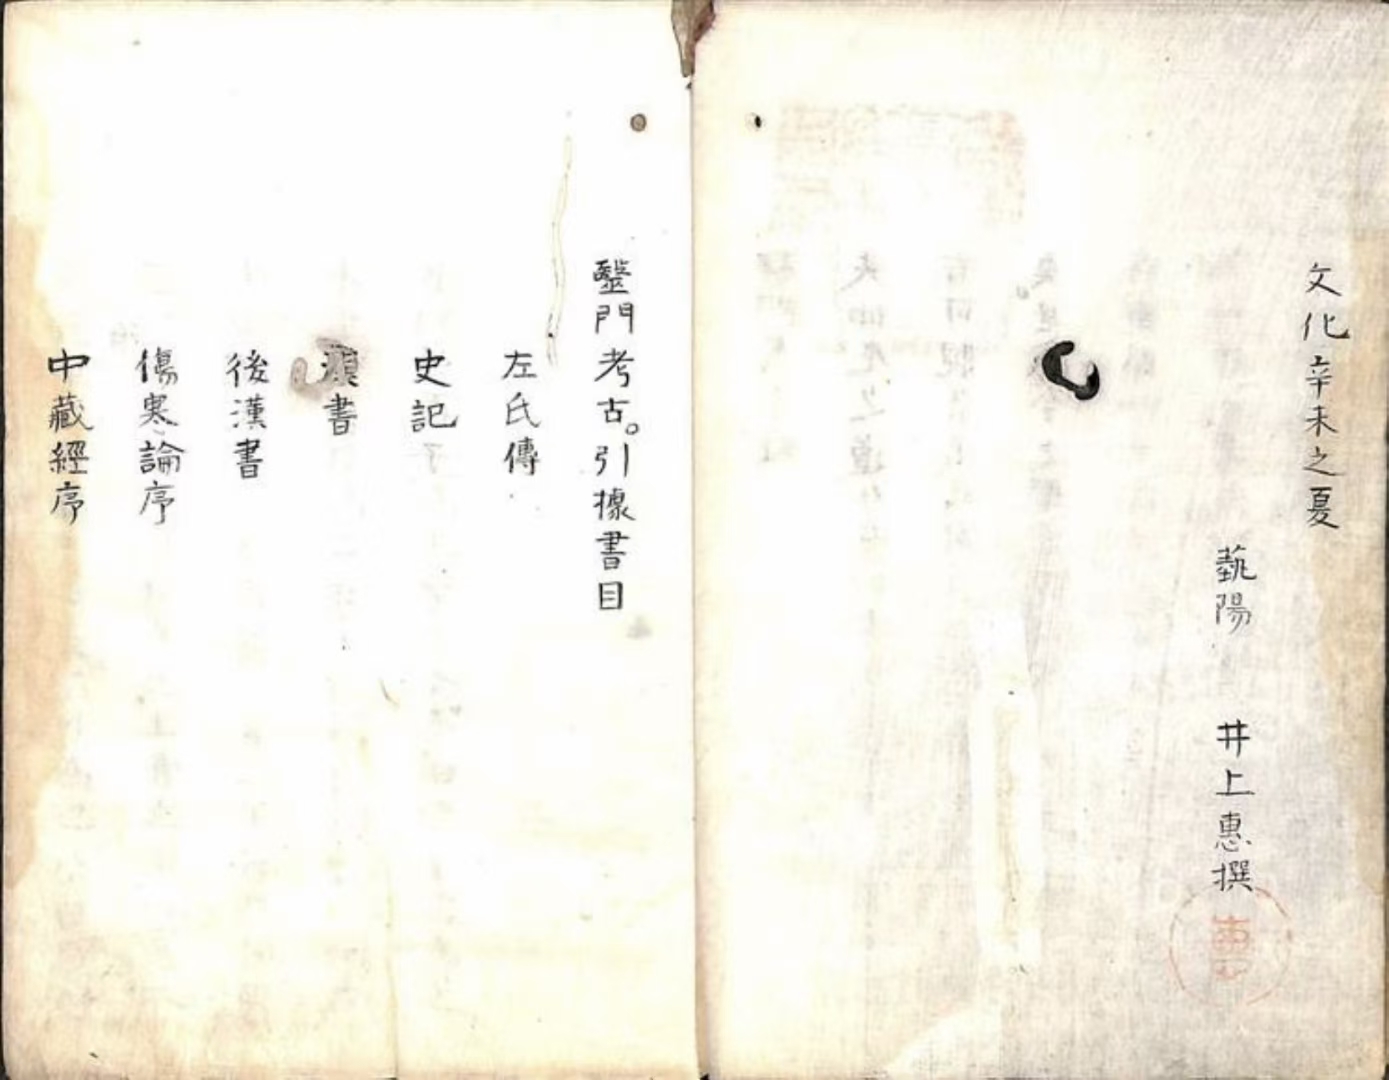 文化辛未之夏
藝陽 井上惠撰
毉門考古。引據書目
左氏傳
史記
漢書
後漢書
傷寒論序
中藏經序